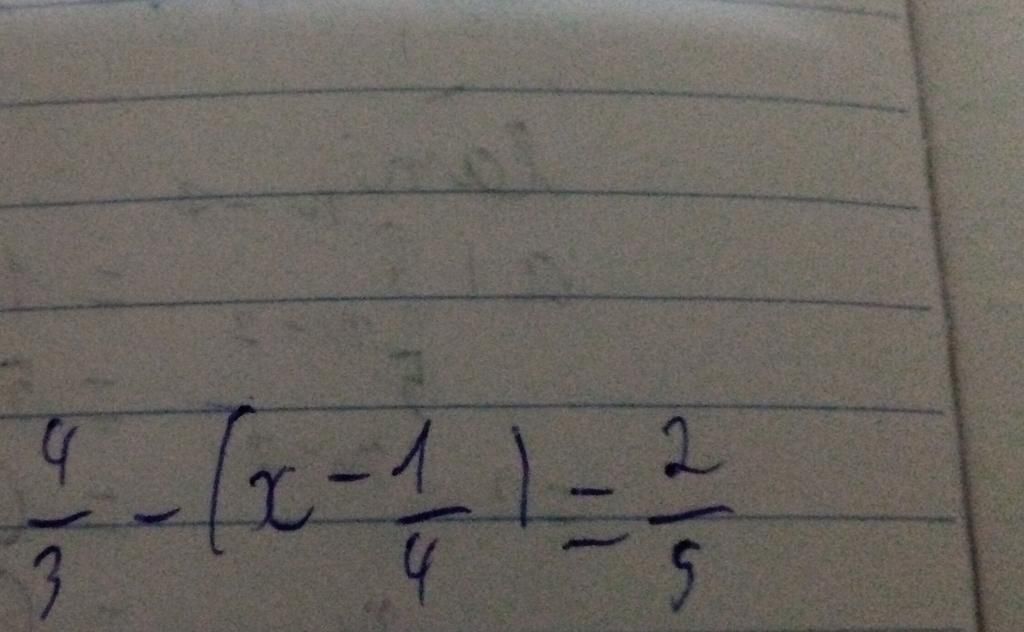 4/3 - (x - 1/4) = 2/5